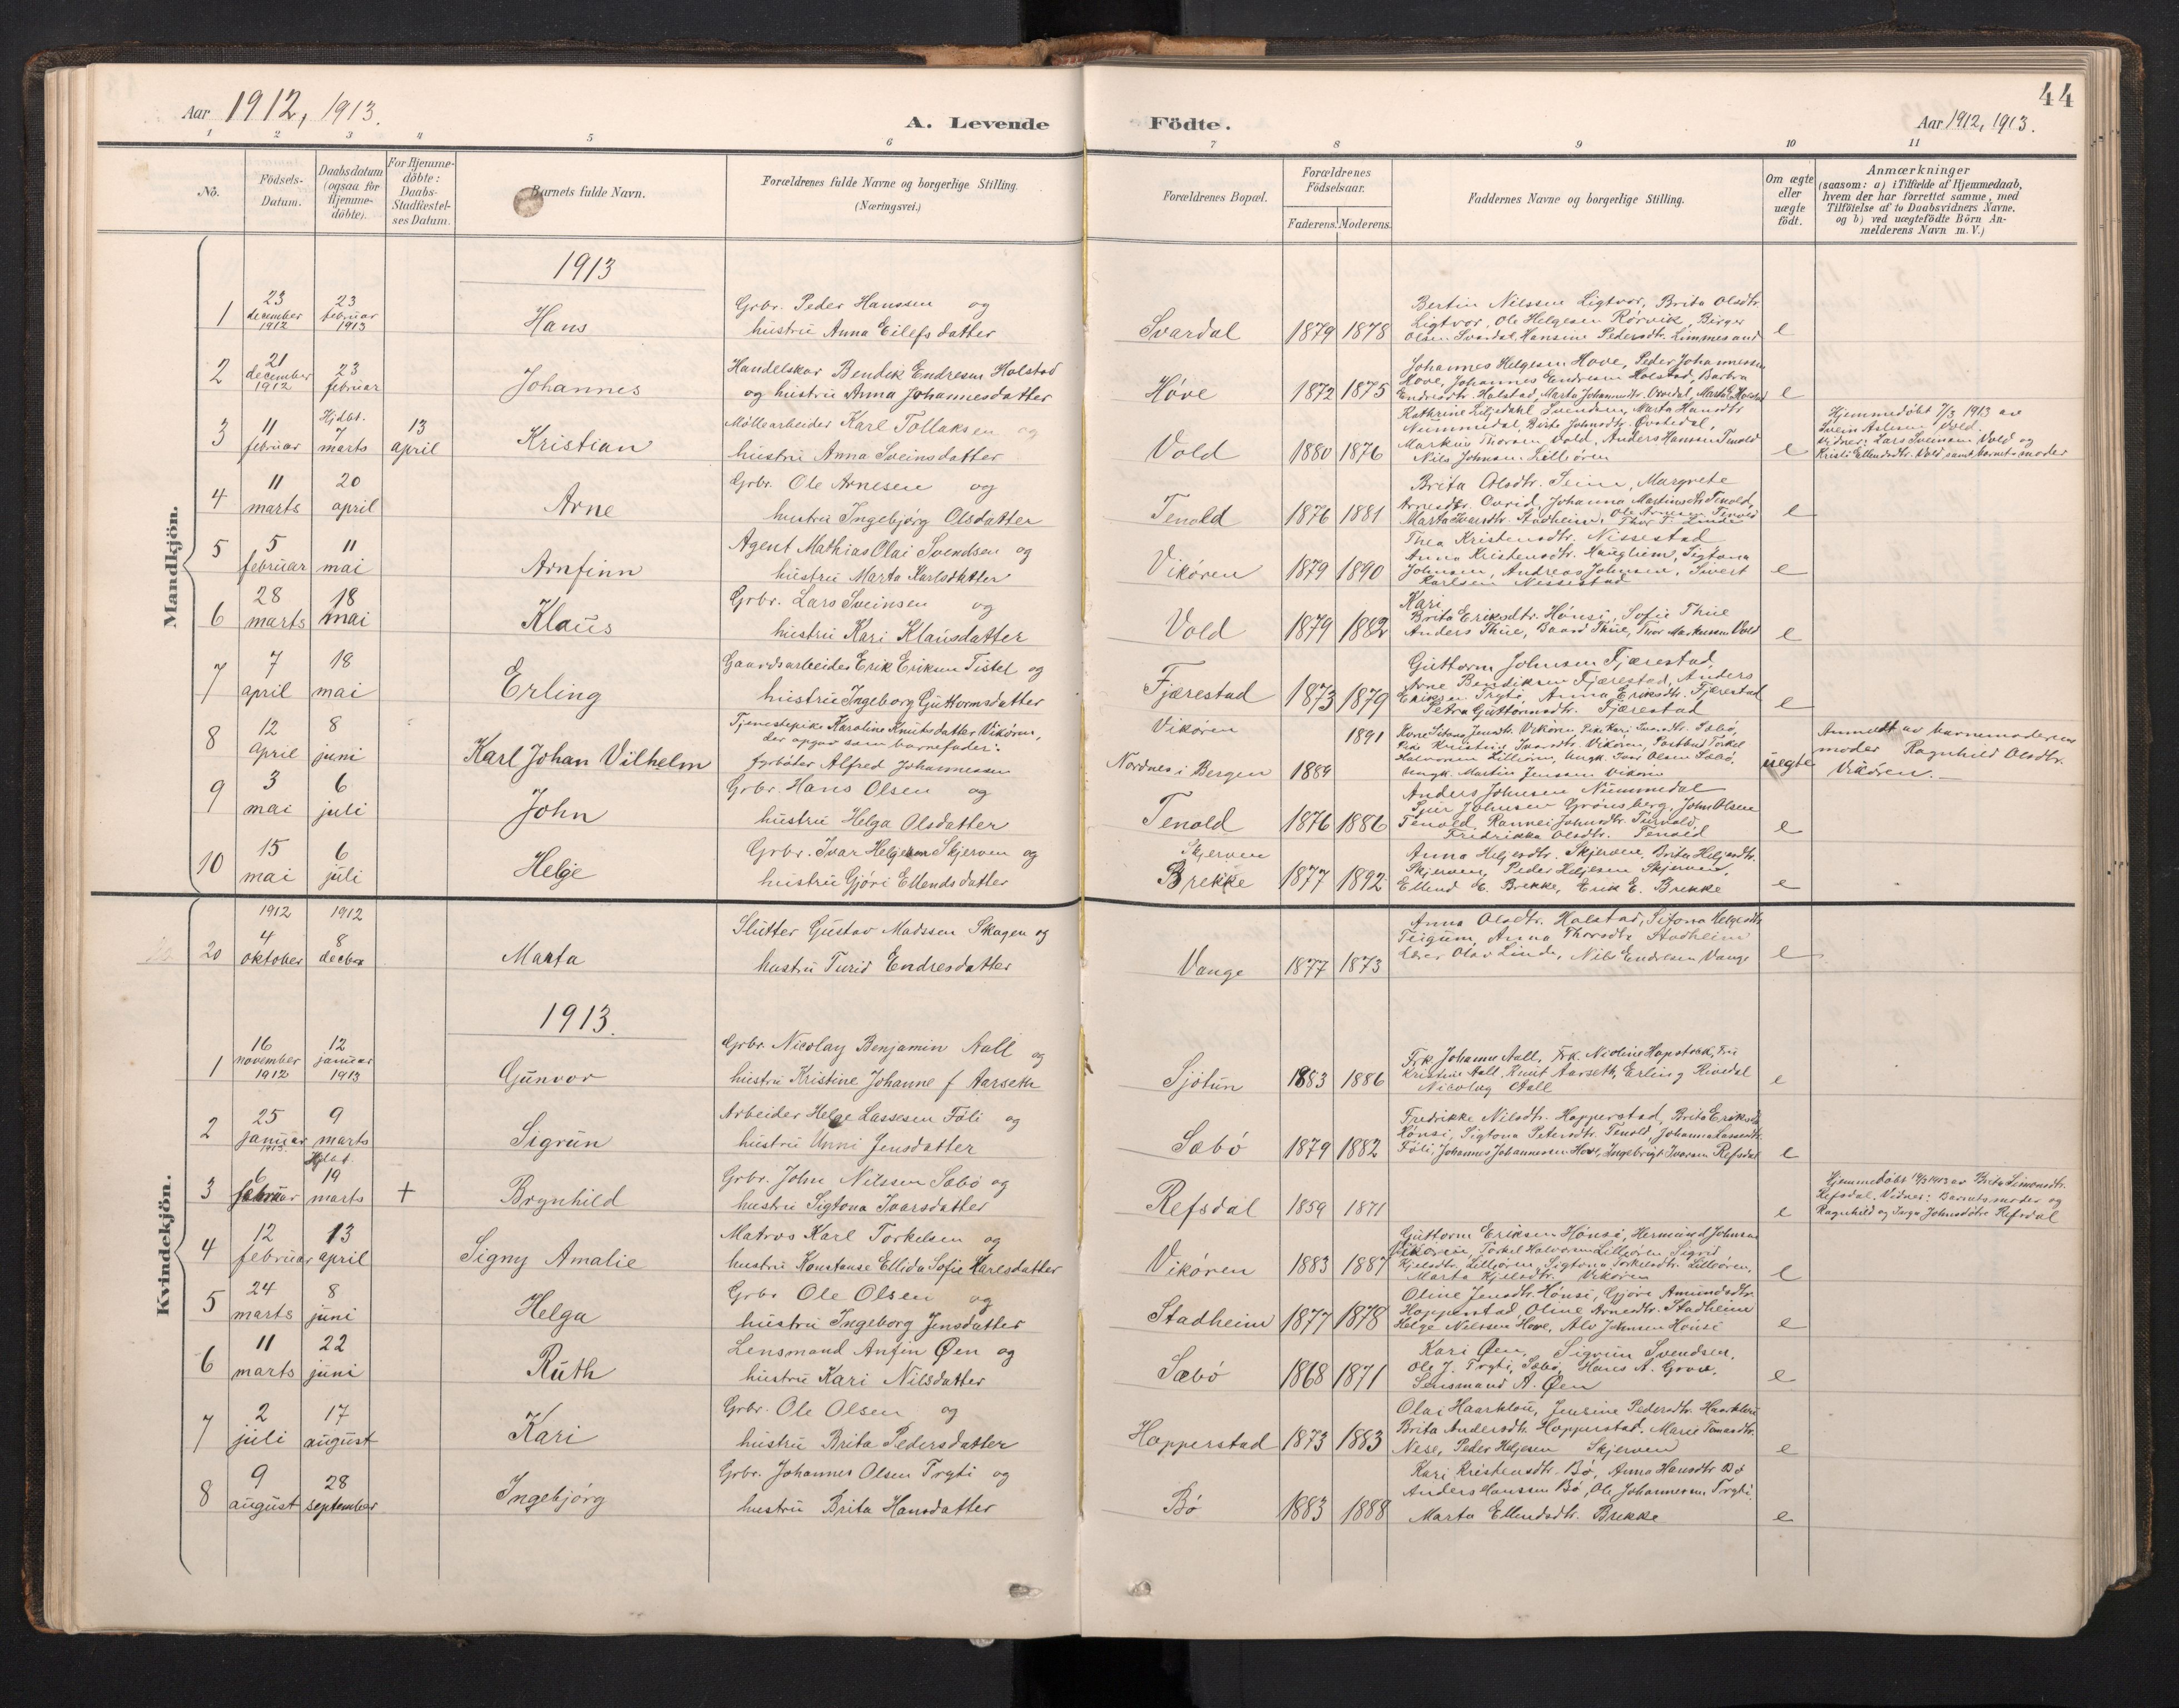 44
Aar 1912, 1913.
A. Levende Födte.
Aar 1912, 1913.
1 2 3 4 5 6 7 8 9 10 11
No.
Födsels-
Datum.
Daabsdatum
(ogsaa för
Hjemme-
döbte).
For Hjemme-
döbte:
Daabs-
Stadfæstel-
ses Datum.
Barnets fulde Navn.
Forældrenes fulde Navne og borgerlige Stilling.
(Næringsvei.)
Forældrenes Bopæl.
Forældrenes
Födselsaar.
Faderens. Moderens.
Faddernes Navne og borgerlige Stilling.
Om ægte
eller
uægte
födt.
Anmærkninger
(saasom: a) i Tilfælde af Hjemmedaab,
hvem der har forrettet samme, med
Tilföielse af to Daabsvidners Navne,
og b) ved uægtefödte Börn An-
melderens Navn m. V.)
Mandkjön.
1913
1
23
december
1912
23
februar
1913
Hans
Grbr. Peder Hanssen og
hustru Anna Eilefsdatter
Svardal
1879 1878
Bertin Nilssen Ligtvor, Brita Olsdtr.
Ligtvor, Ole Helgesen Rörvik, Birger
Olsen Svardal, Hansine Pedersdtr. Limmesand
e
2
21
december
1912
23
februar
Johannes
Handelskar Bendik Endresen Holstad
og hustru Anna Johannesdatter
Höve
1872 1875
Johannes Helgesen Hove, Peder Johannessen
Hove, Johannes Endresen Holstad, Barbra
Endresdtr. Holstad, Marta Johannesdtr. Marta E. Holstad
e
3
11
februar
Hjdbt.
7
marts
13
april
Kristian
Möllearbeider Karl Tollaksen og
hustru Anna Sveinsdatter
Vold
1880 1876
Kathrine Liljedahl Svendsen, Marta Hansdtr.
Nummedal, Brita Johnsdtr. Övstedal,
Markus Thorsen Vold, Anders Hanssen Tenold
Nils Johnsen Lilleören
e
Hjemmedöbt 7/3 1913 av
Svein Vold.
Vidner: Lars Sveinsen Vold og
Kristi Ellendsdtr. Vold samt barnets moder
4
11
marts
20
april
Arne
Grbr. Ole Arnesen og
hustru Ingebjörg Olsdatter
Tenold
1876 1881
Brita Olsdtr. Seim, Margrete
Arnesdtr. Johanna Martinsdtr. Tenold,
Marta Ivarsdtr. Stadheim, Ole Arnesen Tenold Thor T. Linde
e
5
5
februar
11
mai
Arnfinn
Agent Mathias Olai Svendsen og
hustru Marta Karlsdatter
Vikören
1879 1890
Thea Kristensdtr. Nissestad
Anna Kristensdtr. Haugheim, Sigtona
Johnsen, Andreas Johnsen, Sivert
Karlsen Nissestad
e
6
28
marts
18
mai
Klaus
Grbr. Lars Sveinsen og
hustru Kari Klausdatter
Vold
1879 1882
Kari
Brita Eriksdtr. Hönsi, Sofie Thue
Anders Thue, Baard Thue, Thor Markussen Vold
e
7
7
april
18
mai
Erling
Gaardsarbeider Erik Eriksen Tistel og
hustru Ingeborg Guttormsdatter
Fjærestad
1873 1879
Guttorm Johnsen Fjærestad,
Arne Bendiksen Fjærestad, Anders
Eriksen Tryti, Anna Eriksdtr. Fjærestad
Petra Guttormsdtr. Fjærestad
e
8
12
april
8
juni
Karl Johan Vilhelm
Tjenestepike Karoline Knutsdatter Vikören,
der opgav som barnefader:
fyrböter Alfred Johannessen
Vikören
Nordnes i Bergen
1884 1891
Kone Sitona Jensdtr. Vikören, Pike Kari Ivarsdtr. Sæbö,
Pike Kristine Ivarsdtr. Vikören, Postbud Torkel
Halvorsen Lilleören, Ungk. Ivar Olsen Sæbö,
Ungk. Martin Jenssen Vikören
uegte
Anmeldt av barnemoderens
moder Ragnhild Olsdtr.
Vikören.
9
3
mai
6
juli
John
Grbr. Hans Olsen og
hustru Helga Olsdatter
Tenold
1876 1886
Anders Johnsen Nummedal
Sjur Johnsen Grönsberg, John Olsen
Tenold, Rannei Johnsdtr. Turvold,
Fredrikka Olsdtr. Tenold
e
10
15
mai
6
juli
Helge
Grbr. Ivar Helgesen Skjerven og
hustru Gjöri Ellendsdatter
Skjerven
Brekke
1877 1892
Anna Heljesdtr. Skjerven, Brita Heljesdtr.
Skjerven, Peder Heljesen Skjerven,
Ellend E. Brekke, Erik E. Brekke
e
Kvindekjön.
20
1912
4
oktober
1912
8
decber
Marta
Slutter Gustav Madssen Skagen og
hustru Turid Endresdatter
Vange
1877 1873
Anna Olsdtr. Holstad, Sitona Helgesdtr.
Teigum, Anna Thorsdtr. Stadheim
Olav Linde, Nils Endresen Vange
e
1913.
1
16
november
1912
12
januar
1913
Gunvor
Grbr. Nicolay Benjamin Aall og
hustru Kristine Johanne f Aarseth
Sjötun
1883 1886
Frk. Johanne Aall, Frk. Nicoline Hopstock, Fru
Kristine Aall, Knut Aarseth, Erling Kvedal
Nicolay Aall
e
2
25
januar
1913
9
marts
Sigrun
Arbeider Helge Lassesen Föli og
hustru Unni Jensdatter
Sæbö
1879 1882
Fredrikke Nilsdtr. Hopperstad, Brita Eriksdtr.
Hönsi, Sigtona Petersdtr. Tenold, Johanna Lassesdtr.
Föli, Johannes Johannessen Hove, Ingebrigt Ivarsen Refsdal
e
3
6
februar
Hjdbt.
19
marts
+
Brynhild
Grbr. John Nilssen Sæbö og
hustru Sigtona Ivarsdatter
Refsdal
1859 1871
e
Hjemmedöbt 19/3 1913 av Brita Simonsdtr.
Refsdal. Vidner: Barnets moder og
Ragnhild og Inga Johnsdötre Refsdal
4
12
februar
13
april
Signy Amalie
Matros Karl Torkelsen og
hustru Konstanse Ellida Sofie Karlsdatter
Vikören
1883 1887
Guttorm Eriksen Hönsi, Hermund Johnsen
Vikören, Torkel Halvorsen Lilleören, Sigrid
Kjelsdtr. Lilleören, Sigtona Torkelsdtr. Lilleören,
Marta Kjelsdtr. Vikören
e
5
24
marts
8
juni
Helga
Grbr Ole Olsen og
hustru Ingeborg Jensdatter
Stadheim
1877 1878
Oline Jensdtr. Hönsi, Gjöre Amundsdtr.
Hopperstad, Oline Arnesdtr. Stadheim
Helge Nilssen Hove, Alv Johnsen Hönsi
e
6
11
marts
22
juni
Ruth
Lensmand Anfin Øen og
hustru Kari Nilsdatter
Sæbö
1868 1871
Kari Øen, Sigrun Svendsen,
Ole J. Tryti, Sæbö, Hans A. Grov,
Lensmand A. Øen
e
7
2
juli
17
august
Kari
Grbr. Ole Olsen og
hustru Brita Pedersdatter
Hopperstad
1873 1883
Olai Haarklou, Jensine Pedersdtr. Haarklou
Brita Andersdtr. Hopperstad, Marie Tomasdtr.
Nese, Peder Heljesen Skjerven
e
8
9
august
28
september
Ingebjörg
Grbr. Johannes Olsen Tryti og
hustru Brita Hansdatter
Bö
1883 1888
Kari Kristensdtr. Bö, Anna Hansdtr Bö
Anders Hanssen Bö, Ole Johannessen Tryti.
Marta Ellendsdtr. Brekke
e